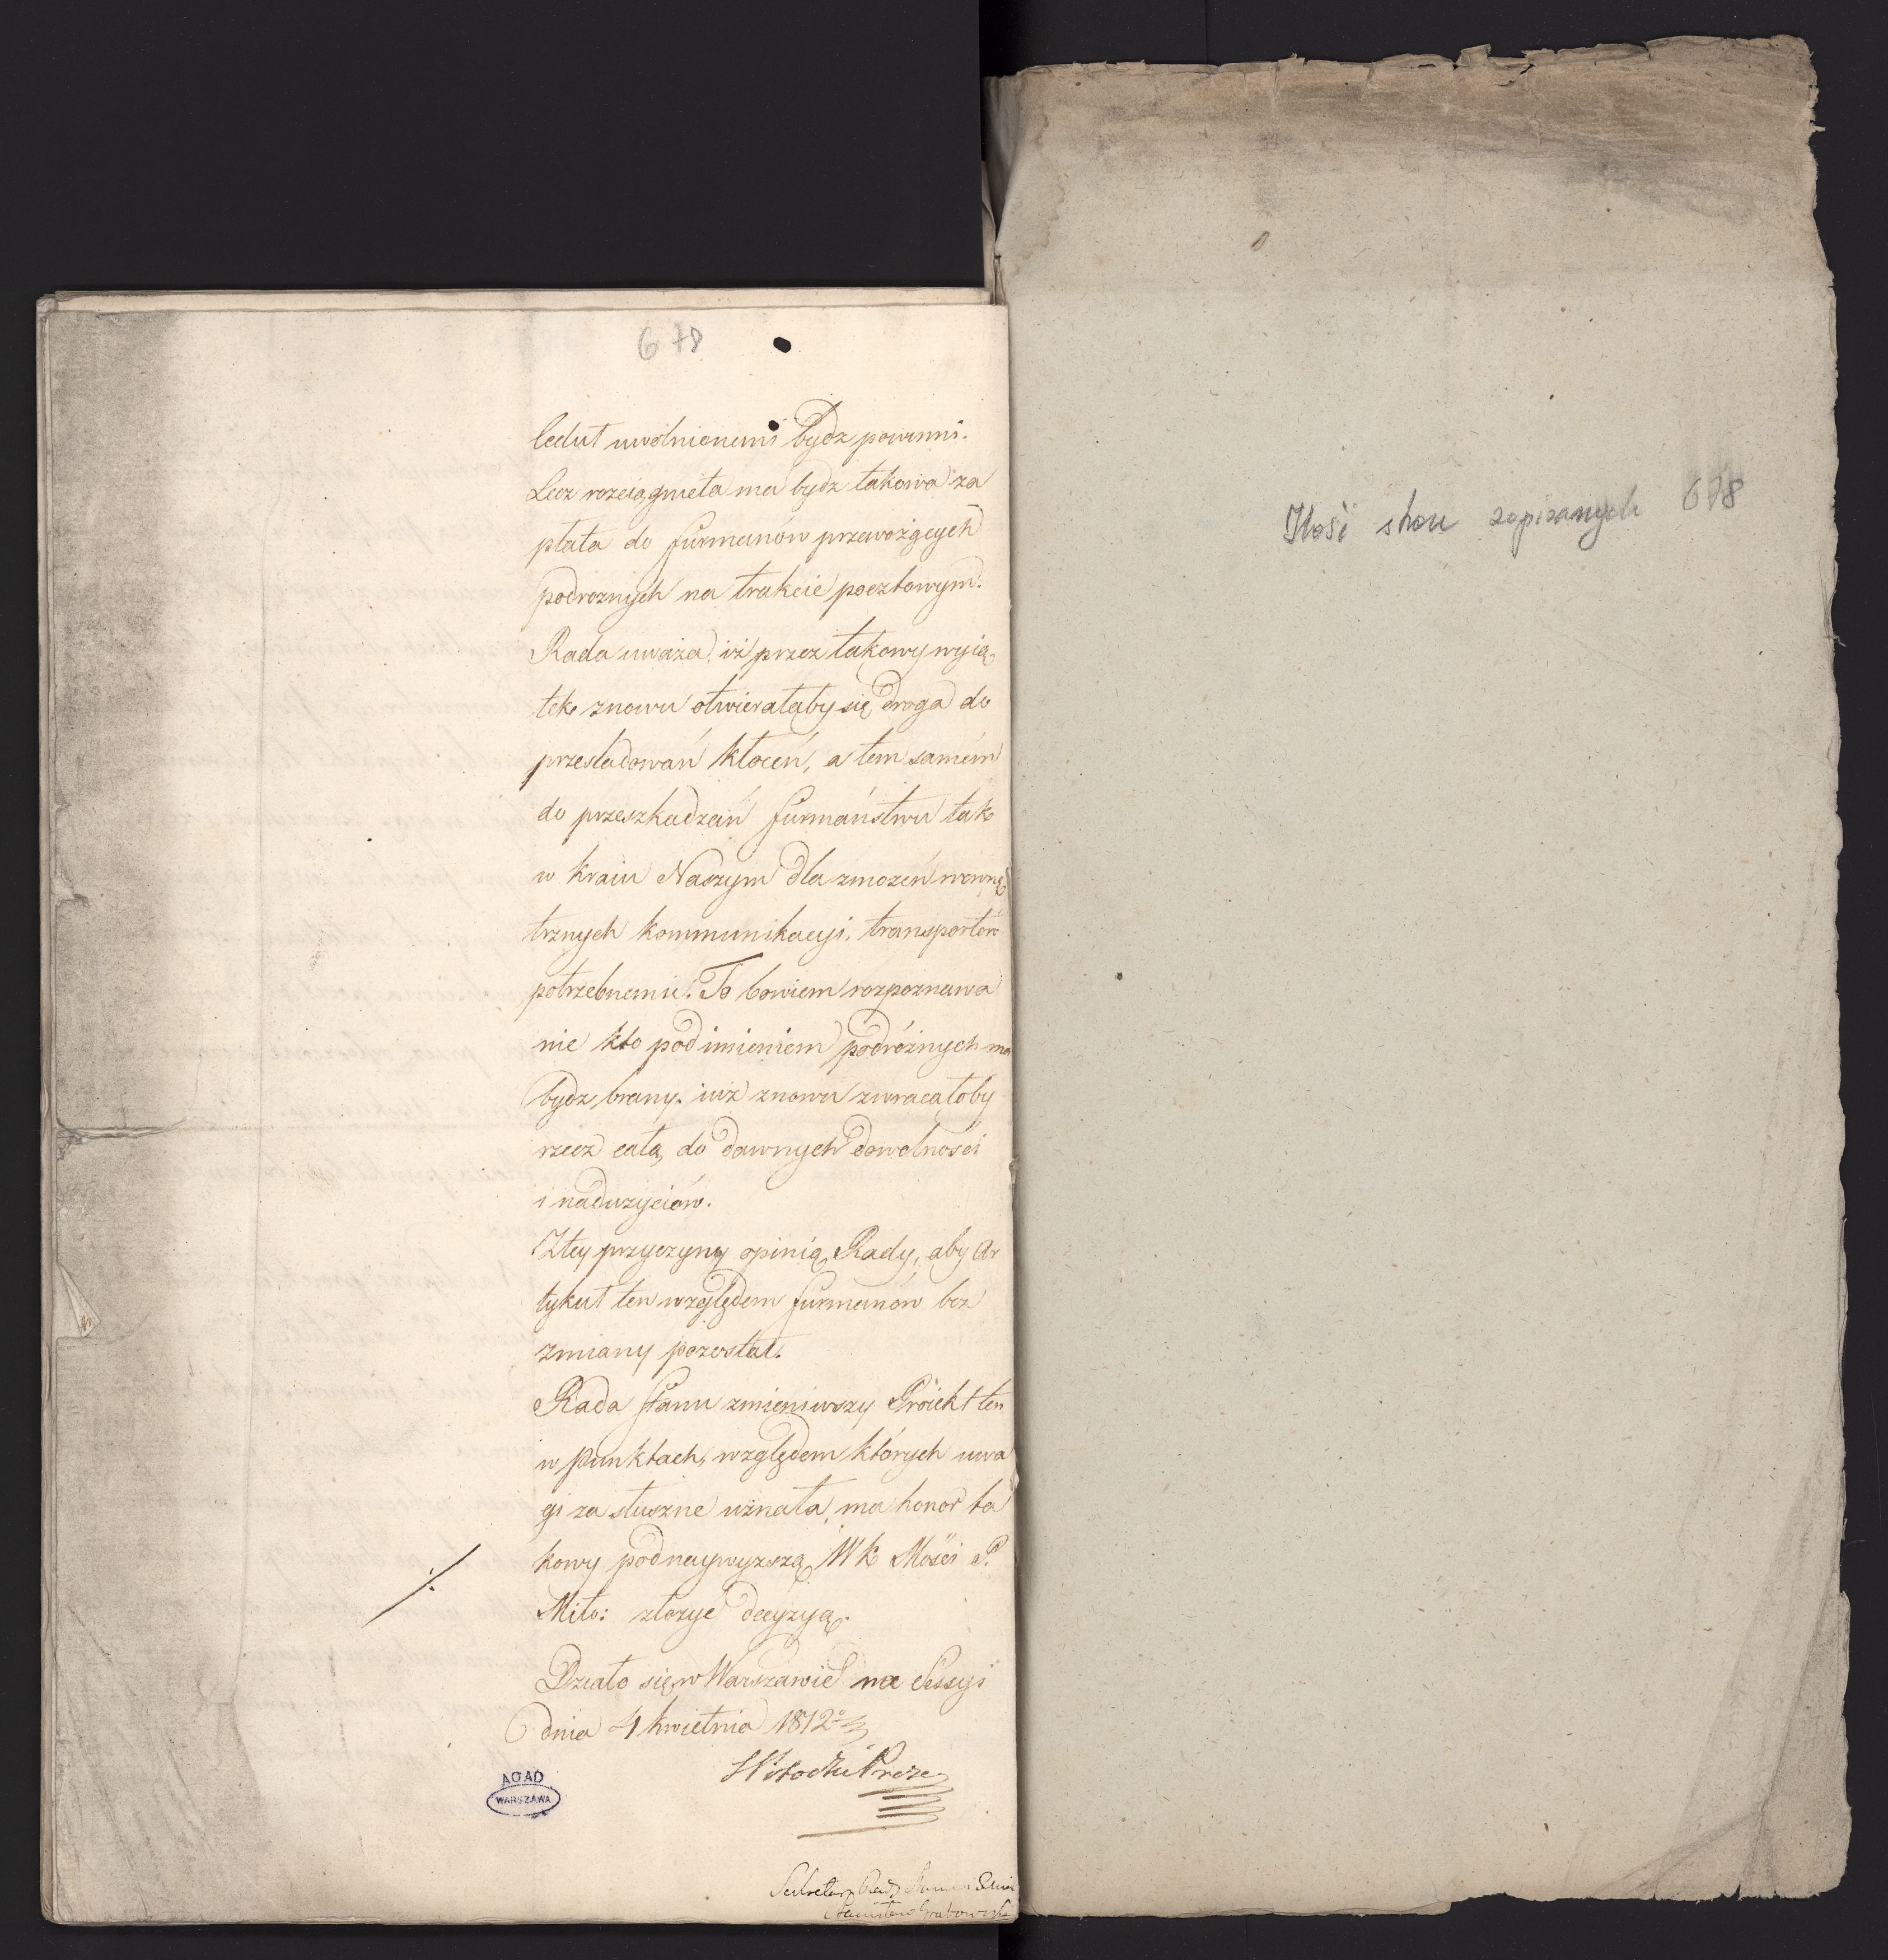 678
ledut uwolnionemi bydz powinni.
Lecz rozciągnieta ma bydz takowa za
płata do furmanów przewożących
podroznych na trakcie pocztowym.
Rada uważa, iż przez takowy wyią
tek znowu otwierałaby się droga do
przesladowań kłoceń, a tem samém
do przeszkadzań furmaństwu tak
w kraiu Naszym dla zmozeń wewnę
trznych kommunikacyi, transportów
potrzebnemu. To bowiem rozpoznawa
nie kto pod imieniem podróżnych ma
bydz brany. iuż znowu zwracałoby
rzecz całą, do dawnych dowolnosci
i naduzyciów.
Ztey przyczyny opinią Rady, aby Ar
tykuł ten względem furmanów bez
zmiany pozostał.
Rada Stanu zmieniwszy Proiekt ten
w punktach, względem których uwa
gi za słuszne uznała, ma honor ta
kowy pod naywyzszą WK Mości P.
Miło: złozyc decyzyą.
Działo się w Warszawie na Sessyi
dnia 4 kwietnia 1812
Prezes
AGAD
WARSZAWA
Sekretarz Rady Stanu
Stanisław Grabowski
Ilość stron zapisanych 678